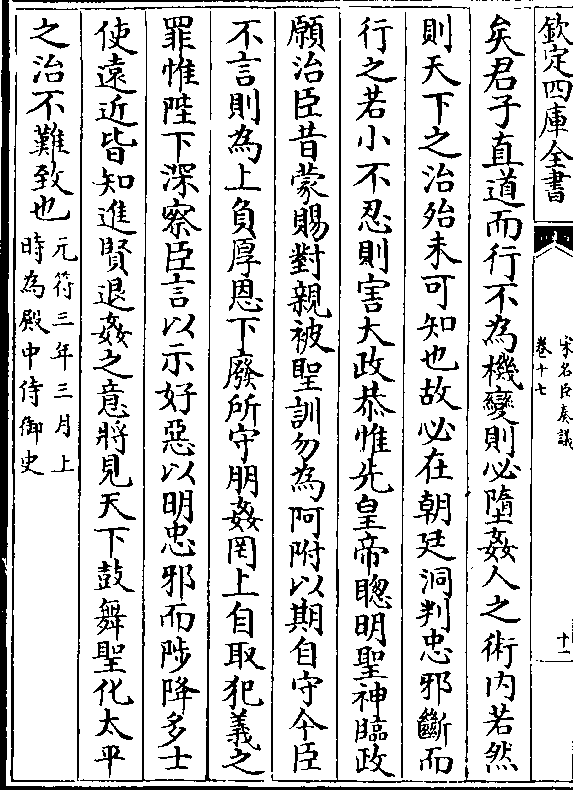 欽定四庫全書
宋名臣奏議
卷十七
十一
矣君子直道而行不為機變則必墮姦人之術内若然
則天下之治殆未可知也故必在朝廷洞判忠邪斷而
行之若小不忍則害大政恭惟先皇帝聰明聖神臨政
願治臣昔蒙賜對親被聖訓勿為阿附以期自守今臣
不言則為上負厚恩下廢所守朋姦罔上自取犯義之
罪惟陛下深察臣言以示好惡以明忠邪而陟降多士
使遠近皆知進賢退姦之意將見天下鼓舞聖化太平
之治不難致也元符三年三月上
時為殿中侍御史